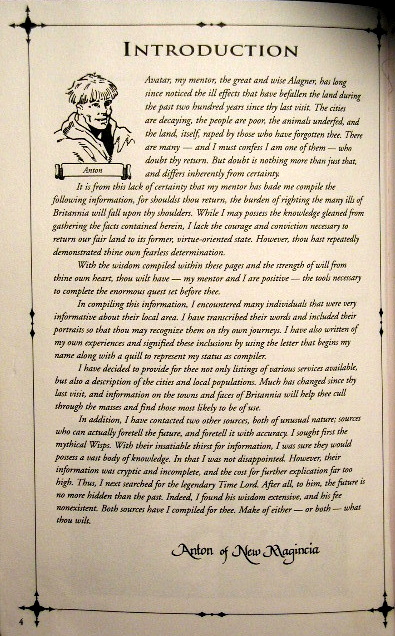 INTRODUCTION
Avatar, my mentor, the great and wise Alagner, has long
since noticed the ill effects that have befallen the land during
the past two hundred years since thy last visit. The cities
are decaying, the people are poor, the animals underfed, and
the land, itself, raped by those who have forgotten thee. There
are many — and I must confess I am one of them — who
doubt thy return. But doubt is nothing more than just that,
and differs inherently from certainty.
Anton
It is from this lack of certainty that my mentor has bade me compile the
following information, for shouldst thou return, the burden of righting the many ills of
Britannia will fall upon thy shoulders. While I may possess the knowledge gleaned from
gathering the facts contained herein, I lack the courage and conviction necessary to
return our fair land to its former, virtue-oriented state. However, thou hast repeatedly
demonstrated thine own fearless determination.
With the wisdom compiled within these pages and the strength of will from
thine own heart, thou wilt have — my mentor and I are positive — the tools necessary
to complete the enormous quest set before thee.
In compiling this information, I encountered many individuals that were very
informative about their local area. I have transcribed their words and included their
portraits so that thou may recognize them on thy own journeys. I have also written of
my own experiences and signified these inclusions by using the letter that begins my
name along with a quill to represent my status as compiler.
I have decided to provide for thee not only listings of various services available,
but also a description of the cities and local populations. Much has changed since thy
last visit, and information on the towns and faces of Britannia will help thee cull
through the masses and find those most likely to be of use.
In addition, I have contacted two other sources, both of unusual nature; sources
who can actually foretell the future, and foretell it with accuracy. I sought first the
mythical Wisps. With their insatiable thirst for information, I was sure they would
possess a vast body of knowledge. In that I was not disappointed. However, their
information was cryptic and incomplete, and the cost for further explication far too
high. Thus, I next searched for the legendary Time Lord. After all, to him, the future is
no more hidden than the past. Indeed, I found his wisdom extensive, and his fee
nonexistent. Both sources have I compiled for thee. Make of either — or both — what
thou wilt.
Anton of New Magincia
4